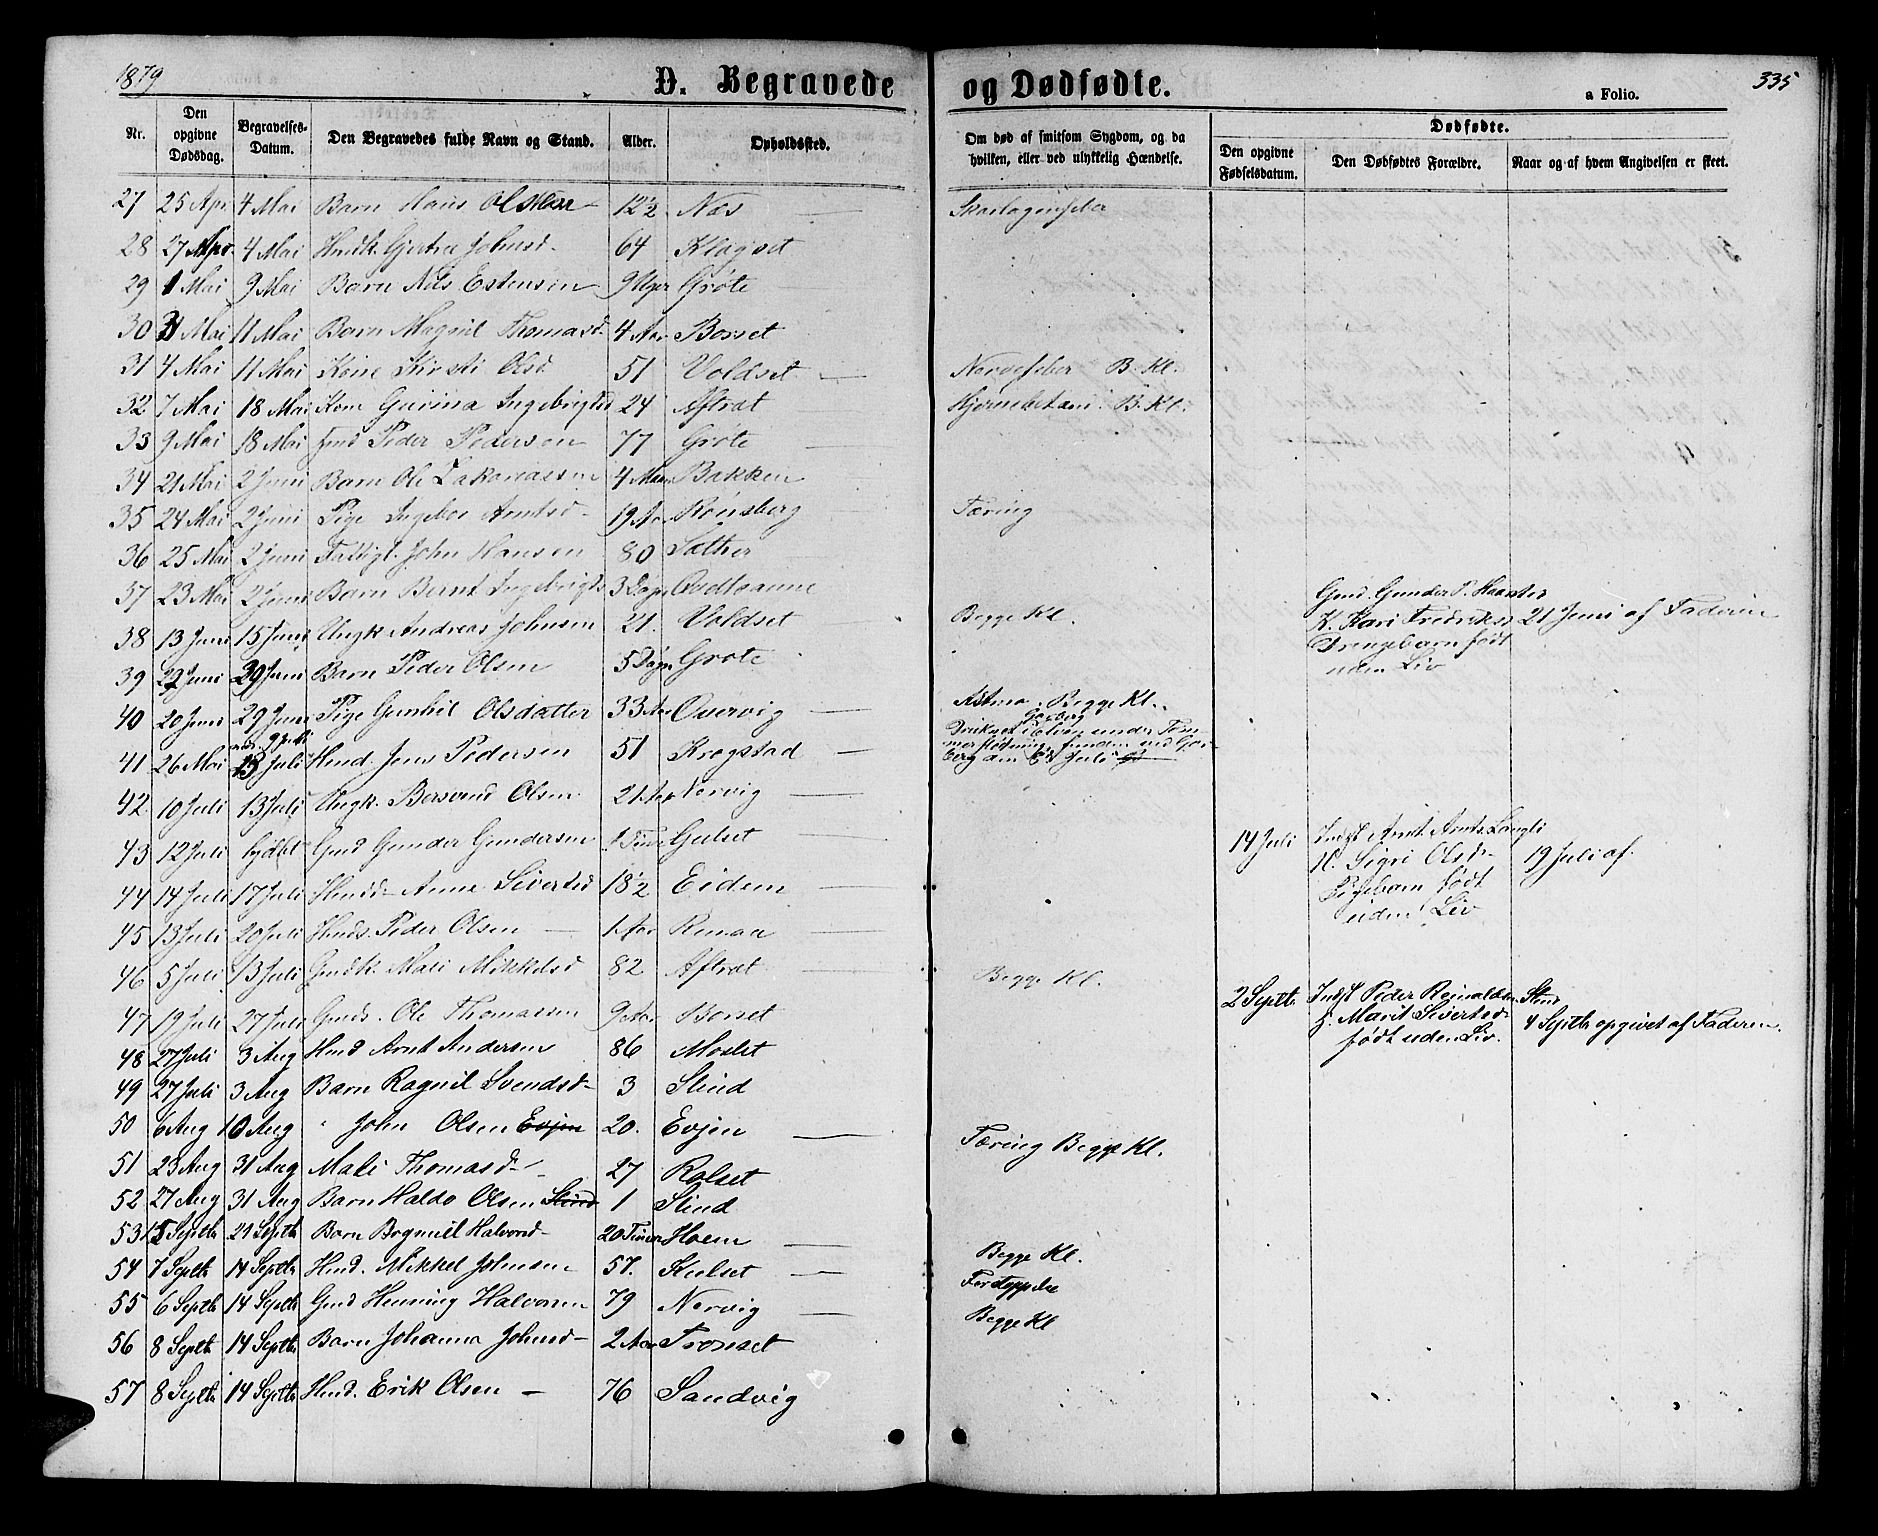 1879
D. Begravede og Dødfødte.
a Folio.
335
Nr.
Den opgivne Dødsdag.
Begravelses-Datum.
Den Begravedes fulde Navn og Stand.
Alder.
Opholdssted.
Om død af smitsom Sygdom, og da hvilken, eller ved ulykkelig Hændelse.
Dødfødte.
Den opgivne Fødselsdatum.
Den Dødfødtes Forældre.
Naar og af hvem Angivelsen er skeet.
27 25 Apr 4 Mai Barn Olsen 12½ Næs Skarlagensfeber
28 27 Apr. 4 Mai Johnsd. 64 Klagset
29 1 Mai 9 Mai Barn Nils Estensen 9 Uger Grøte
30 Mai 11 Mai Barn Magnil Thomasd. 4 Aar Borset
31 4 Mai 11 Mai Kone Kirsti Olsd 51 Voldset Nervefeber B. Kl.
32 7 Mai 18 Mai Kone Gurina Ingebrigtsd 24 Aftrøt B. Kl.
33 9 Mai 18 Mai Peder Pedersen 77 Grøte
34 21 Mai 2 Juni Barn Ole Zakariassen 4 Bakken
35 24 Mai 2 Juni Pige Ingebor Arntsd 19 Aar Rønsberg Tæring
36 25 Mai 2 Juni John Hansen 80 Sæther
37 23 Mai 2 Juni Barn Bernt Ingebrigts 3 Dage
38 13 Juni 15 Juni Ungk Andreas Johnsen 21. Voldset Begge Kl.
Gmd. Gunder P.
K. Kari Fredriksd 21 Juni af Faderen
Drengebarn født
uden Liv
39 Juni Juni Barn Peder Olsen 5 Dage Grøte
40 20 Juni 29 Juni Pige Gunhil Olsdatter 33 Aar Overvig Astma. Begge Kl.
41 26 Mai 13 Juli Hmd. Jens Pedersen 51 Krogstad Druknet i Elven under Tøm
merflødning funden ved
Juli
42. 10 Juli 13 Juli Ungk. Bersvend Olsen 21 Aar Nervig
43 12 Juli Gmd Gunder Gundersen 1 Time Gulset
14 Juli Indst Arnt Arnts. Langli
H. Sigri Olsdr 19 Juli af.
Pigebarn født
uden Liv
44 14 Juli 17 Juli Anne Sivertsd 18½ Eidem
45 13 Juli 20 Juli Peder Olsen 1 Aar Renaa
46 5 Juli 13 Juli Mali Mikkelsd 82 Aftrøt Begge Kl.
47 19 Juli 27 Juli Ole Thomassen 9 Aar Borset
2 Septb Indst Peder Stend
H. Marit Sivertsdr 4 Septb opgivet af Faderen.
født uden Liv.
48 27 Juli 3 Aug Hmd Arnt Andersen 86 Moslet
49 27 Juli 3 Aug Barn Ragnil Svendsd 3 Slind
50 6 Aug 10 Aug " John Olsen Evjen 20. Evjen
51 23 Aug 31 Aug Mali Thomasd 27 Rolset Tæring Begge Kl.
52 27 Aug 31 Aug Barn Haldo Olsen Slind 1 Slind
53 Septb 21 Septb Barn Halvorsd 20 Timer Hoem
54 7 Septb 14 Septb Hmd. Mikkel Johnsen 57. Kulset Begge Kl.
55 6 Septb 14 Septb Gmd Henning Halvorsen 79 Nervig Forstoppelse
56 8 Septb 14 Septb Barn Johanna Johnsd 2 Aar Tronset Begge Kl
57 8 Septb 14 Septb Hmd. Erik Olsen 76 Sandvig